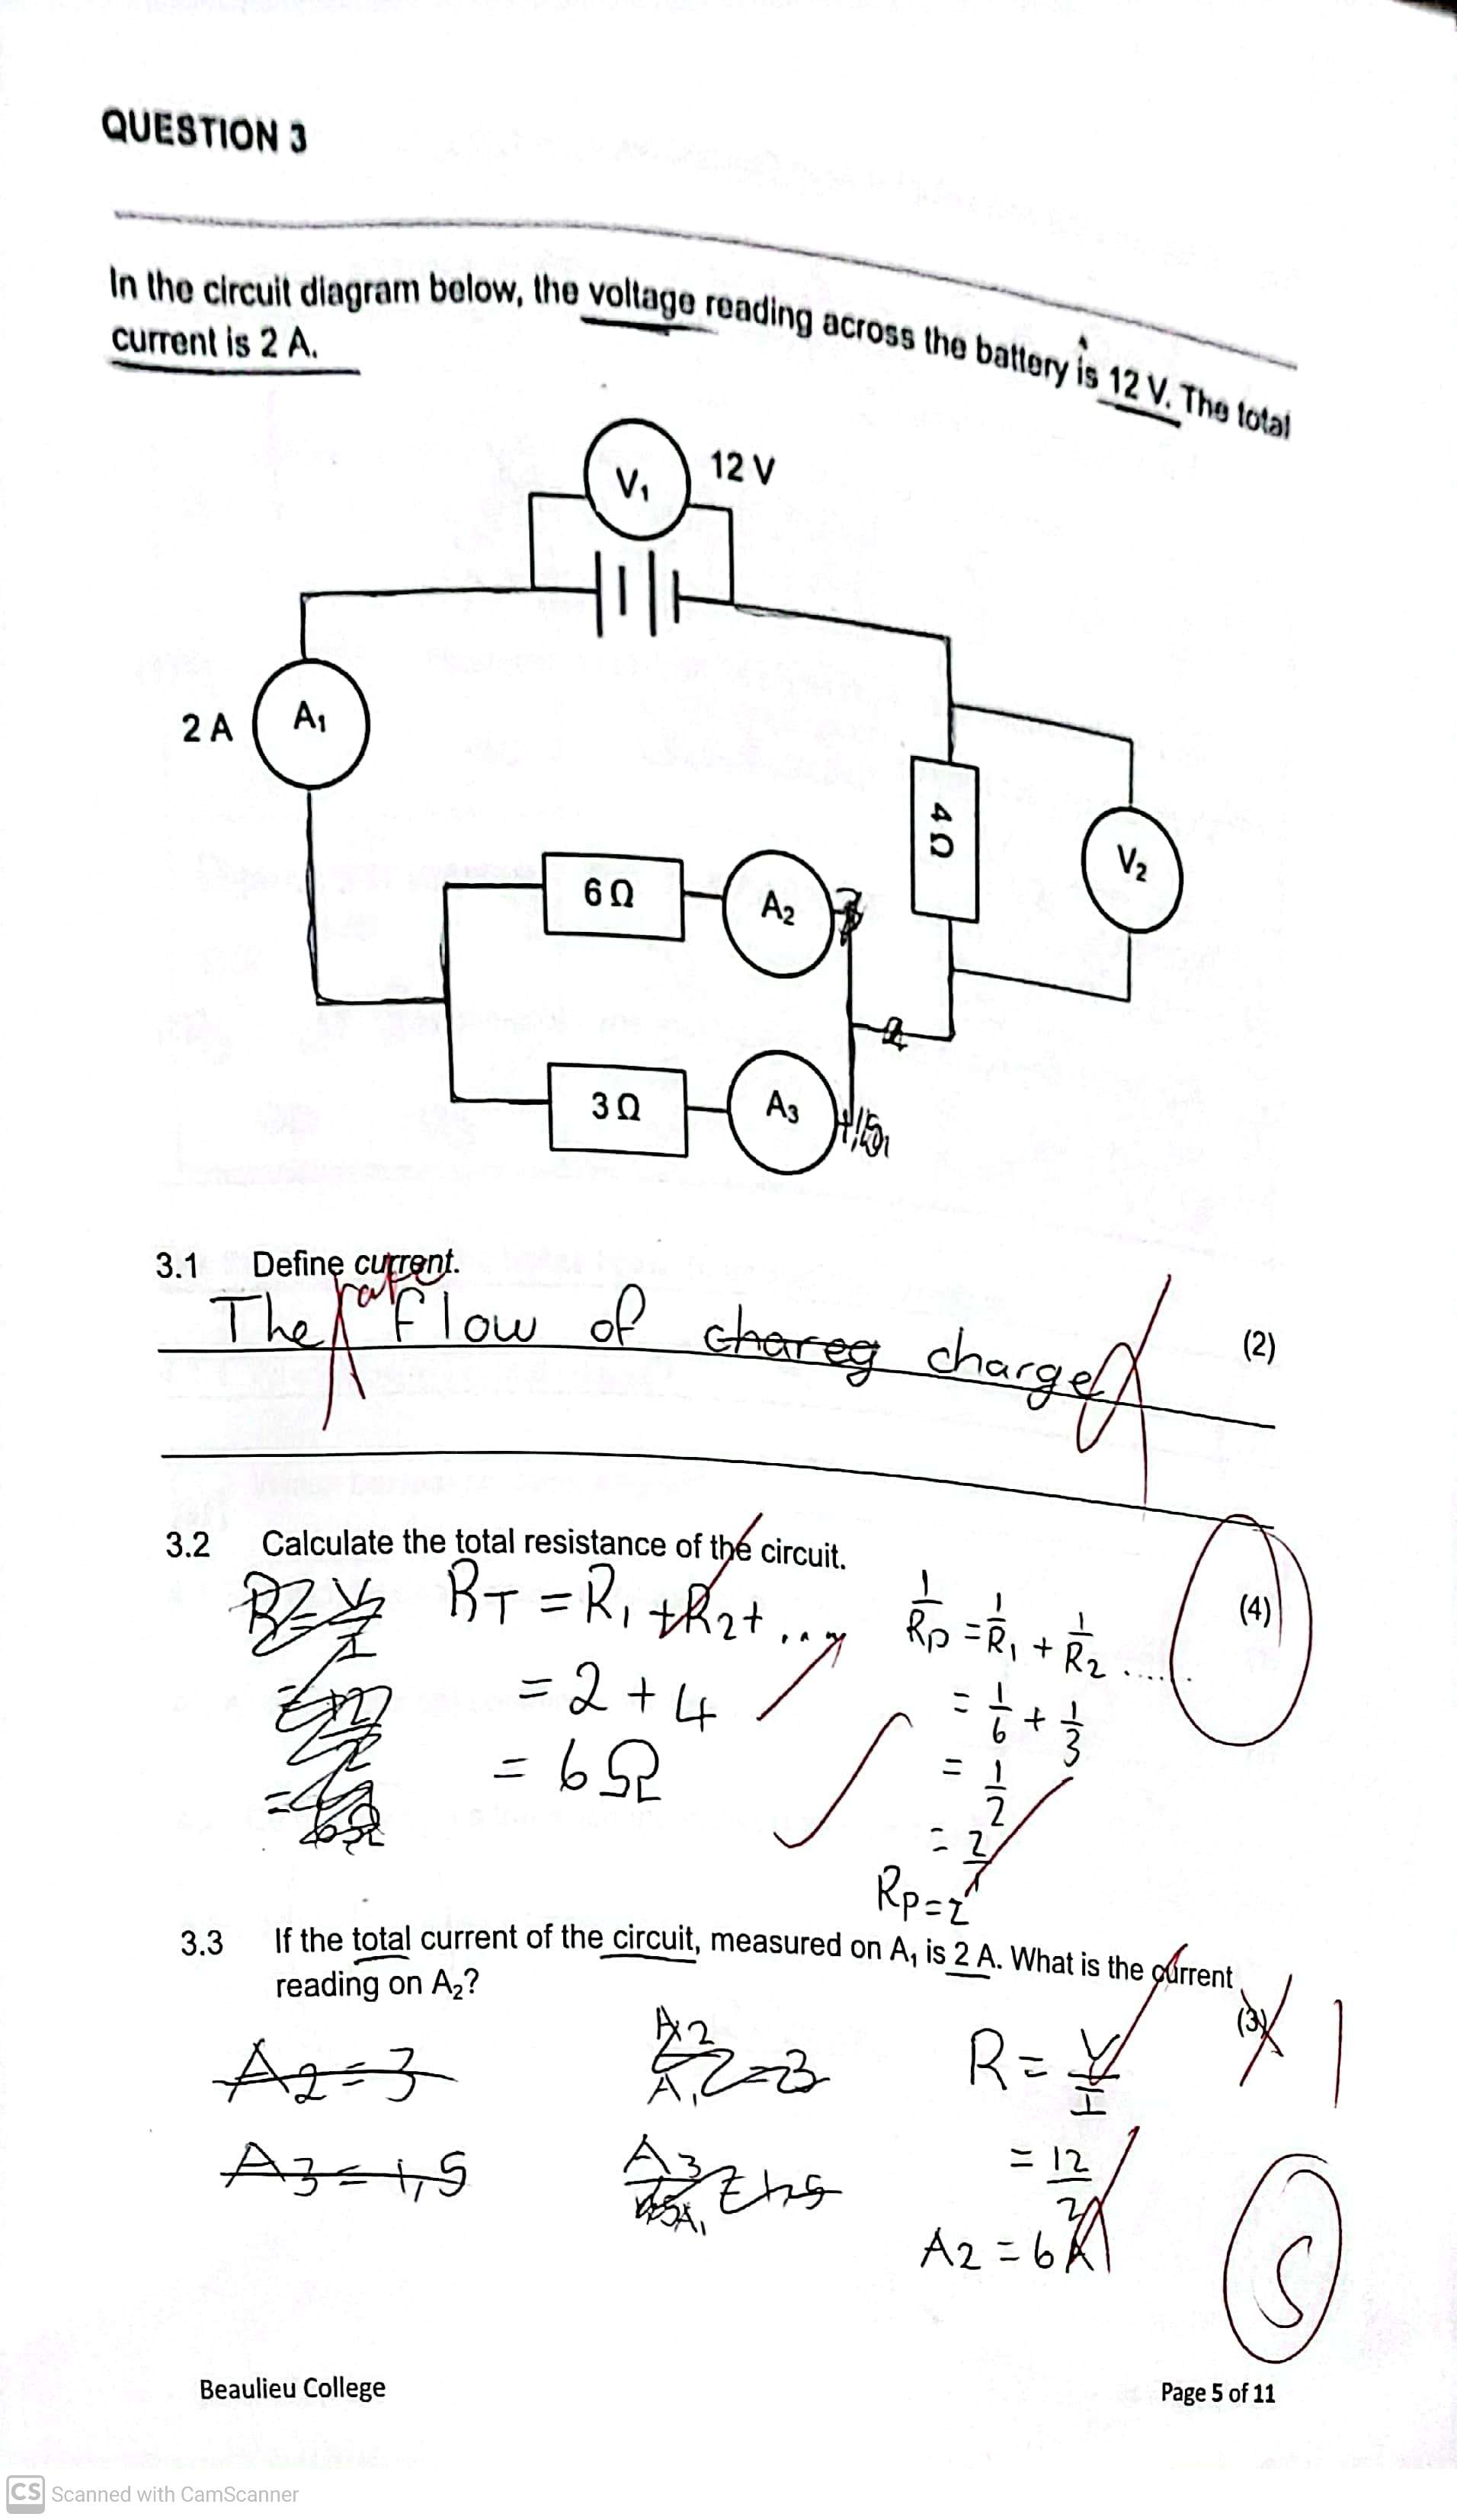 QUESTION 3
In the circuit diagram below, the voltage reading across the battery is 12 V. The total
current is 2 A.
V₁ 12 V
2 A A₁
4 Ω
V₂
6 Ω A₂
3 Ω A₃
3.1 Define current.
rate
The flow of chareg charge
(2)
3.2 Calculate the total resistance of the circuit.
(4)
R = V/I
RT = R₁ + R₂ + ....
= 2 + 4
= 6 Ω
1/Rp = 1/R₁ + 1/R₂ ......
= 1/6 + 1/3
= 1/2
= 2/1
Rp = 2
3.3 If the total current of the circuit, measured on A₁ is 2 A. What is the current
reading on A₂?
(3)
1
A2 = 3
A3 = 1,5
R = V/I
= 12/2
A2 = 6A
5
Beaulieu College
Page 5 of 11
CS Scanned with CamScanner